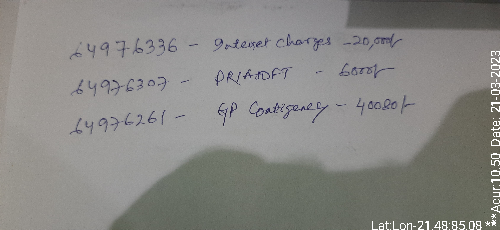 64976336 - Internet charges - 20,000/-
64976307 - PRIASOFT - 6000/-
64976261 - GP Contigency - 40080/-
Lat:Lon-21.48:85.08 ***Acur:10.50 Date: 21-03-2023